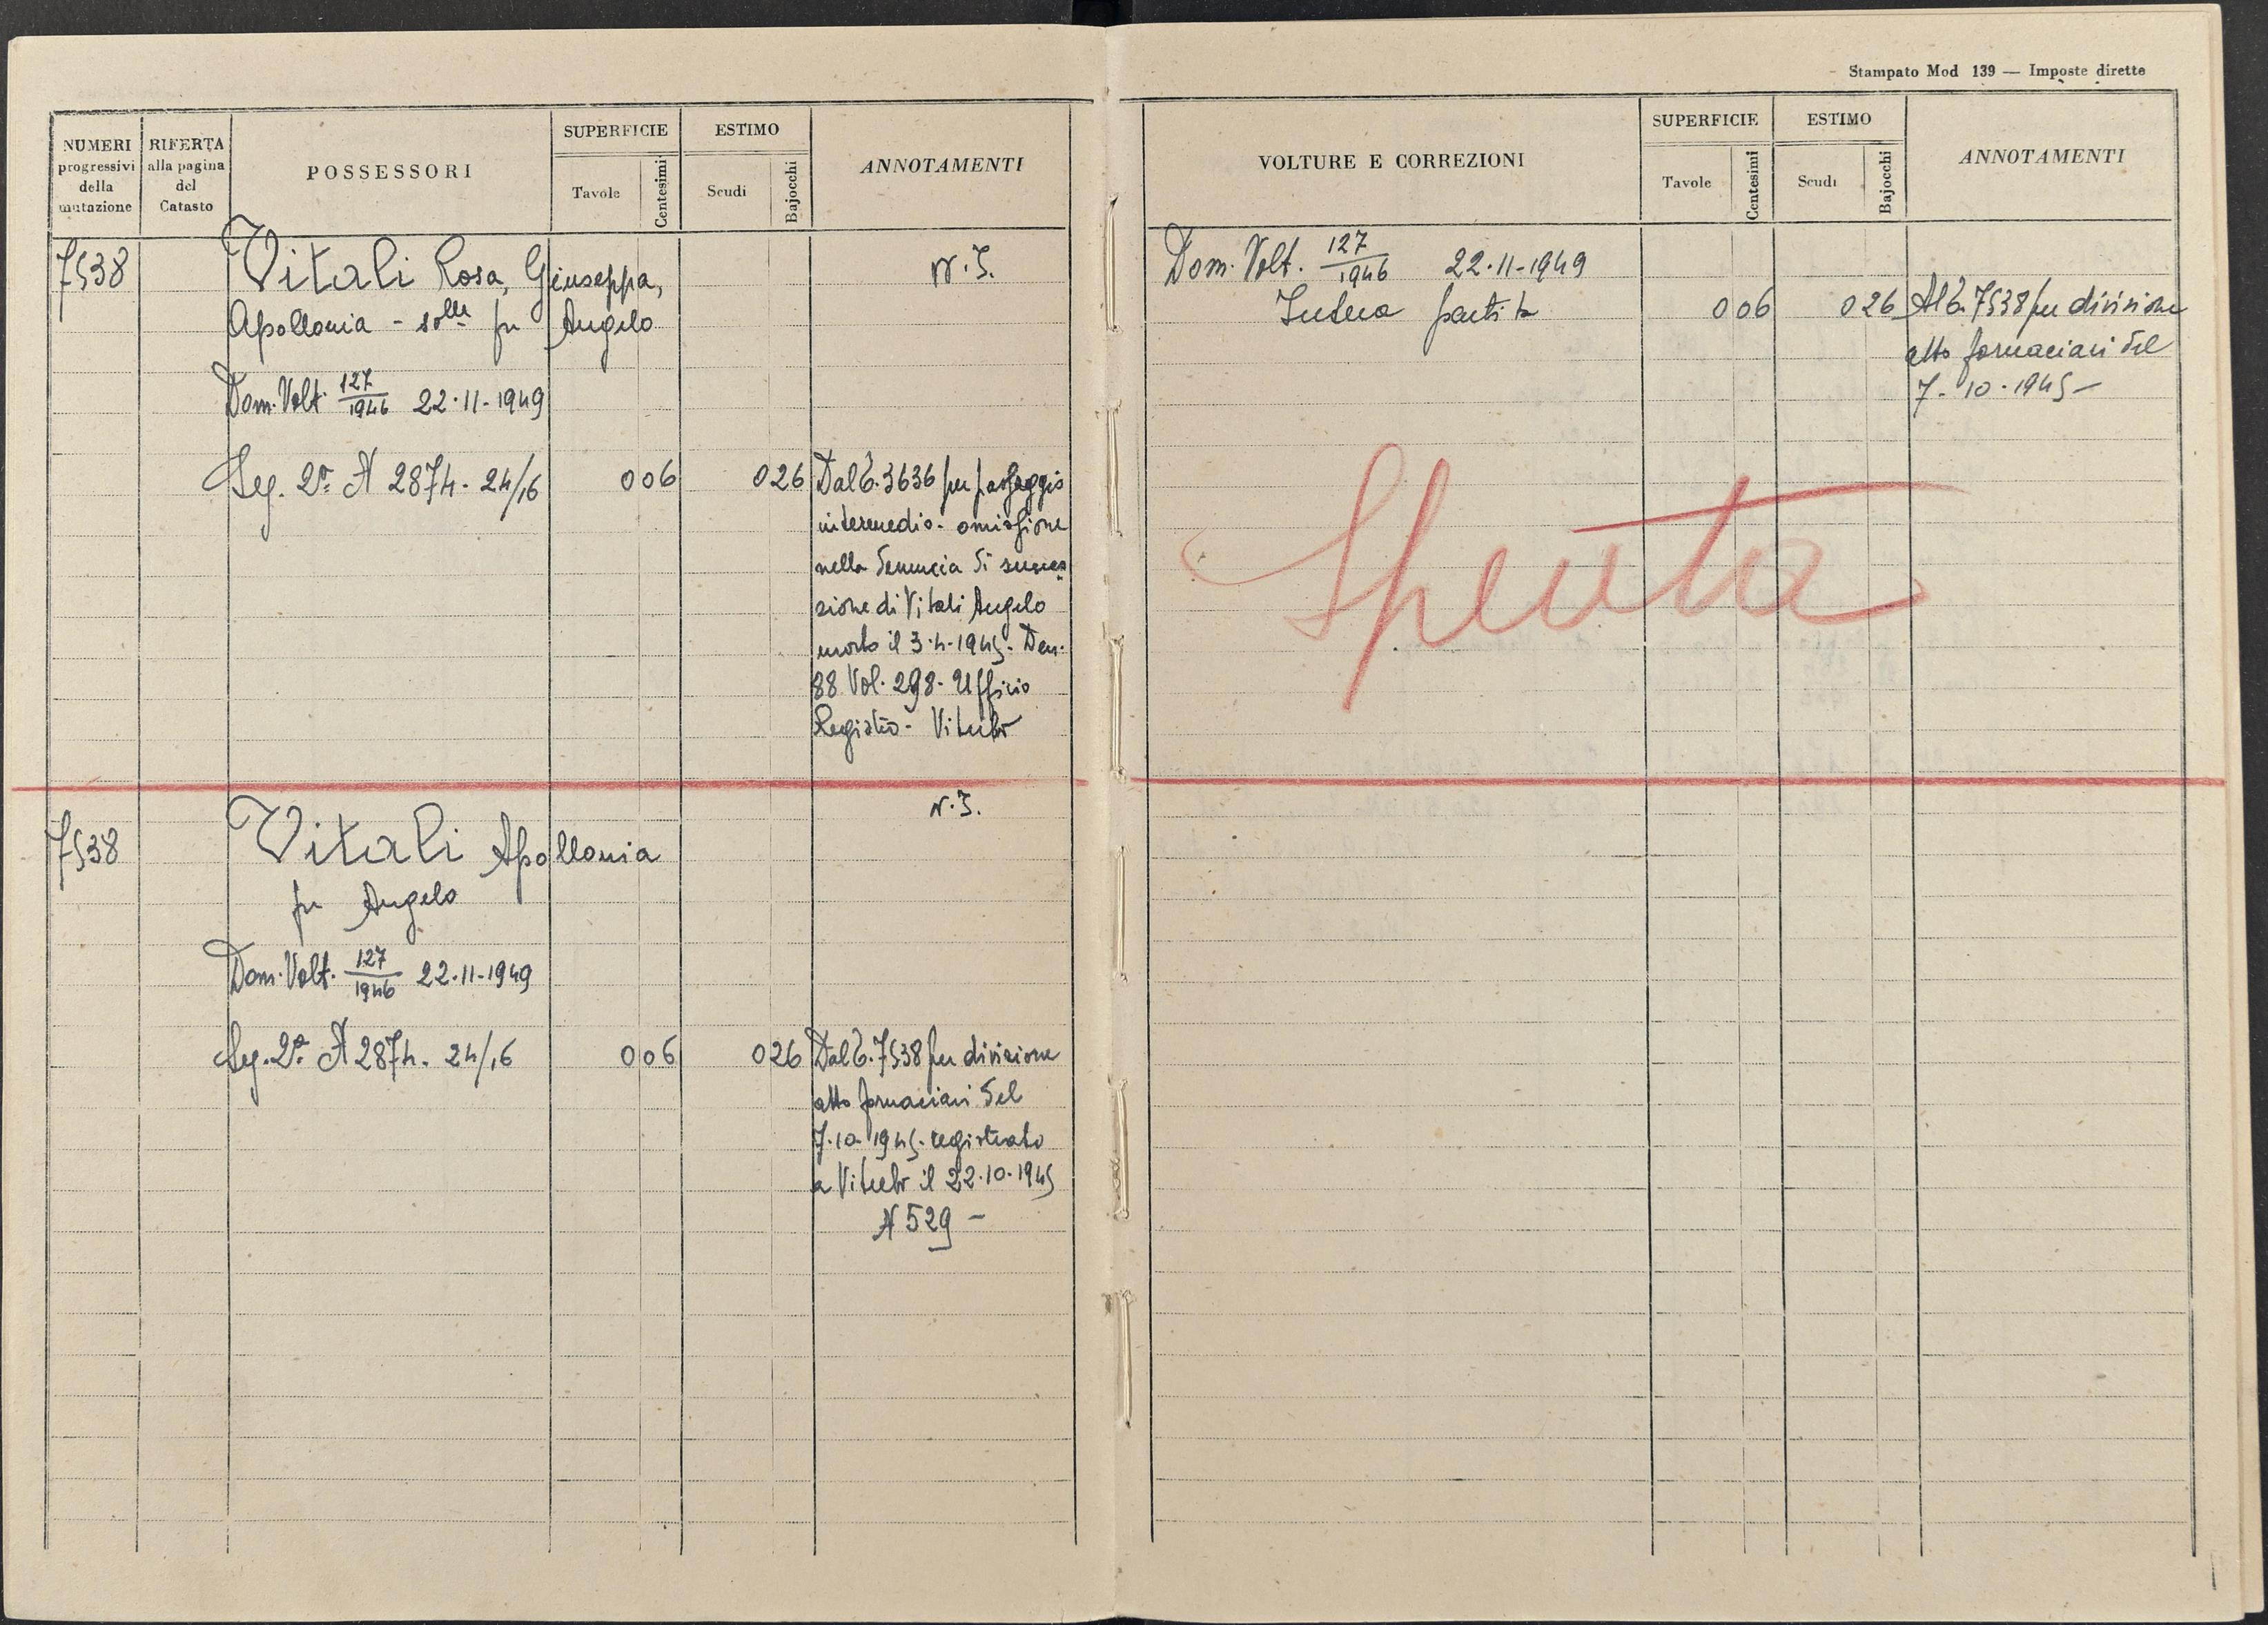 Stampato Mod 139 — Imposte dirette
NUMERI progressivi della mutazione
RIFERTA alla pagina del Catasto
POSSESSORI
SUPERFICIE
Tavole
Centesimi
ESTIMO
Scudi
Bajocchi
ANNOTAMENTI
7538
Vitali Rosa, Giuseppa,
Apollonia - solle fu Angelo
N. I.
Dom. Volt. 127/1946 22-11-1949
Seg. 2ª N 2874 - 24/16
0 06
0 26
Dal C. 3636 per passaggio
intermedio - omissione
nella denuncia di succes
sione di Vitali Angelo
morto il 3-4-1945 - Den.
88 Vol. 298 - Ufficio
Registro - Viterbo
7538
Vitali Apollonia
fu Angelo
N. I.
Dom. Volt. 127/1946 22-11-1949
Seg. 2ª N 2874 - 24/16
0 06
0 26
Dal C. 7538 per divisione
atto Fornaciari del
7-10-1945 - registrato
a Viterbo il 22-10-1945
N 529 -
VOLTURE E CORREZIONI
SUPERFICIE
Tavole
Centesimi
ESTIMO
Scudi
Bajocchi
ANNOTAMENTI
Dom. Volt. 127/1946 22-11-1949
Intera partita
0 06
0 26
Al C. 7538 per divisione
atto Fornaciari del
7-10-1945 -
Spenta